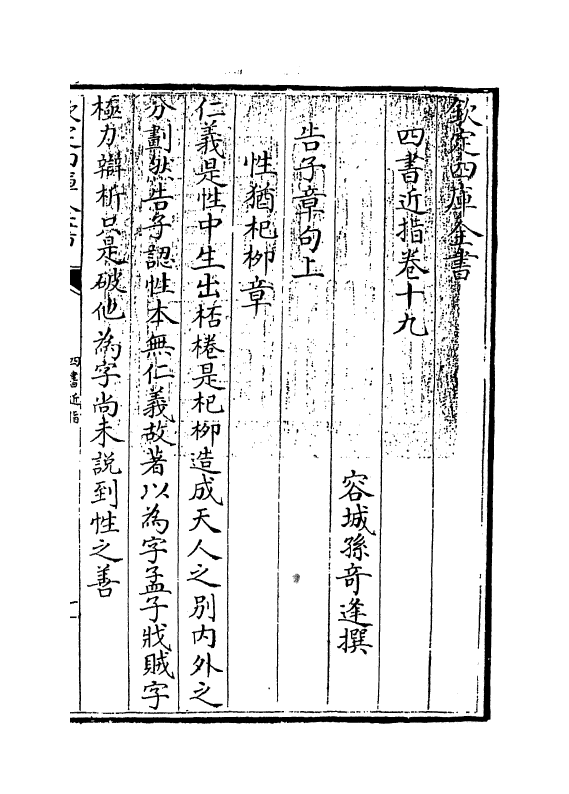 欽定四庫全書
四書近指卷十九
容城孫竒逢撰
告子章句上
性猶杞柳章
仁義是性中生出桮棬是杞柳造成天人之别内外之
分劃然告子認性本無仁義故著以為字孟子戕賊字
極力辯析只是破他為字尚未說到性之善
四書近指